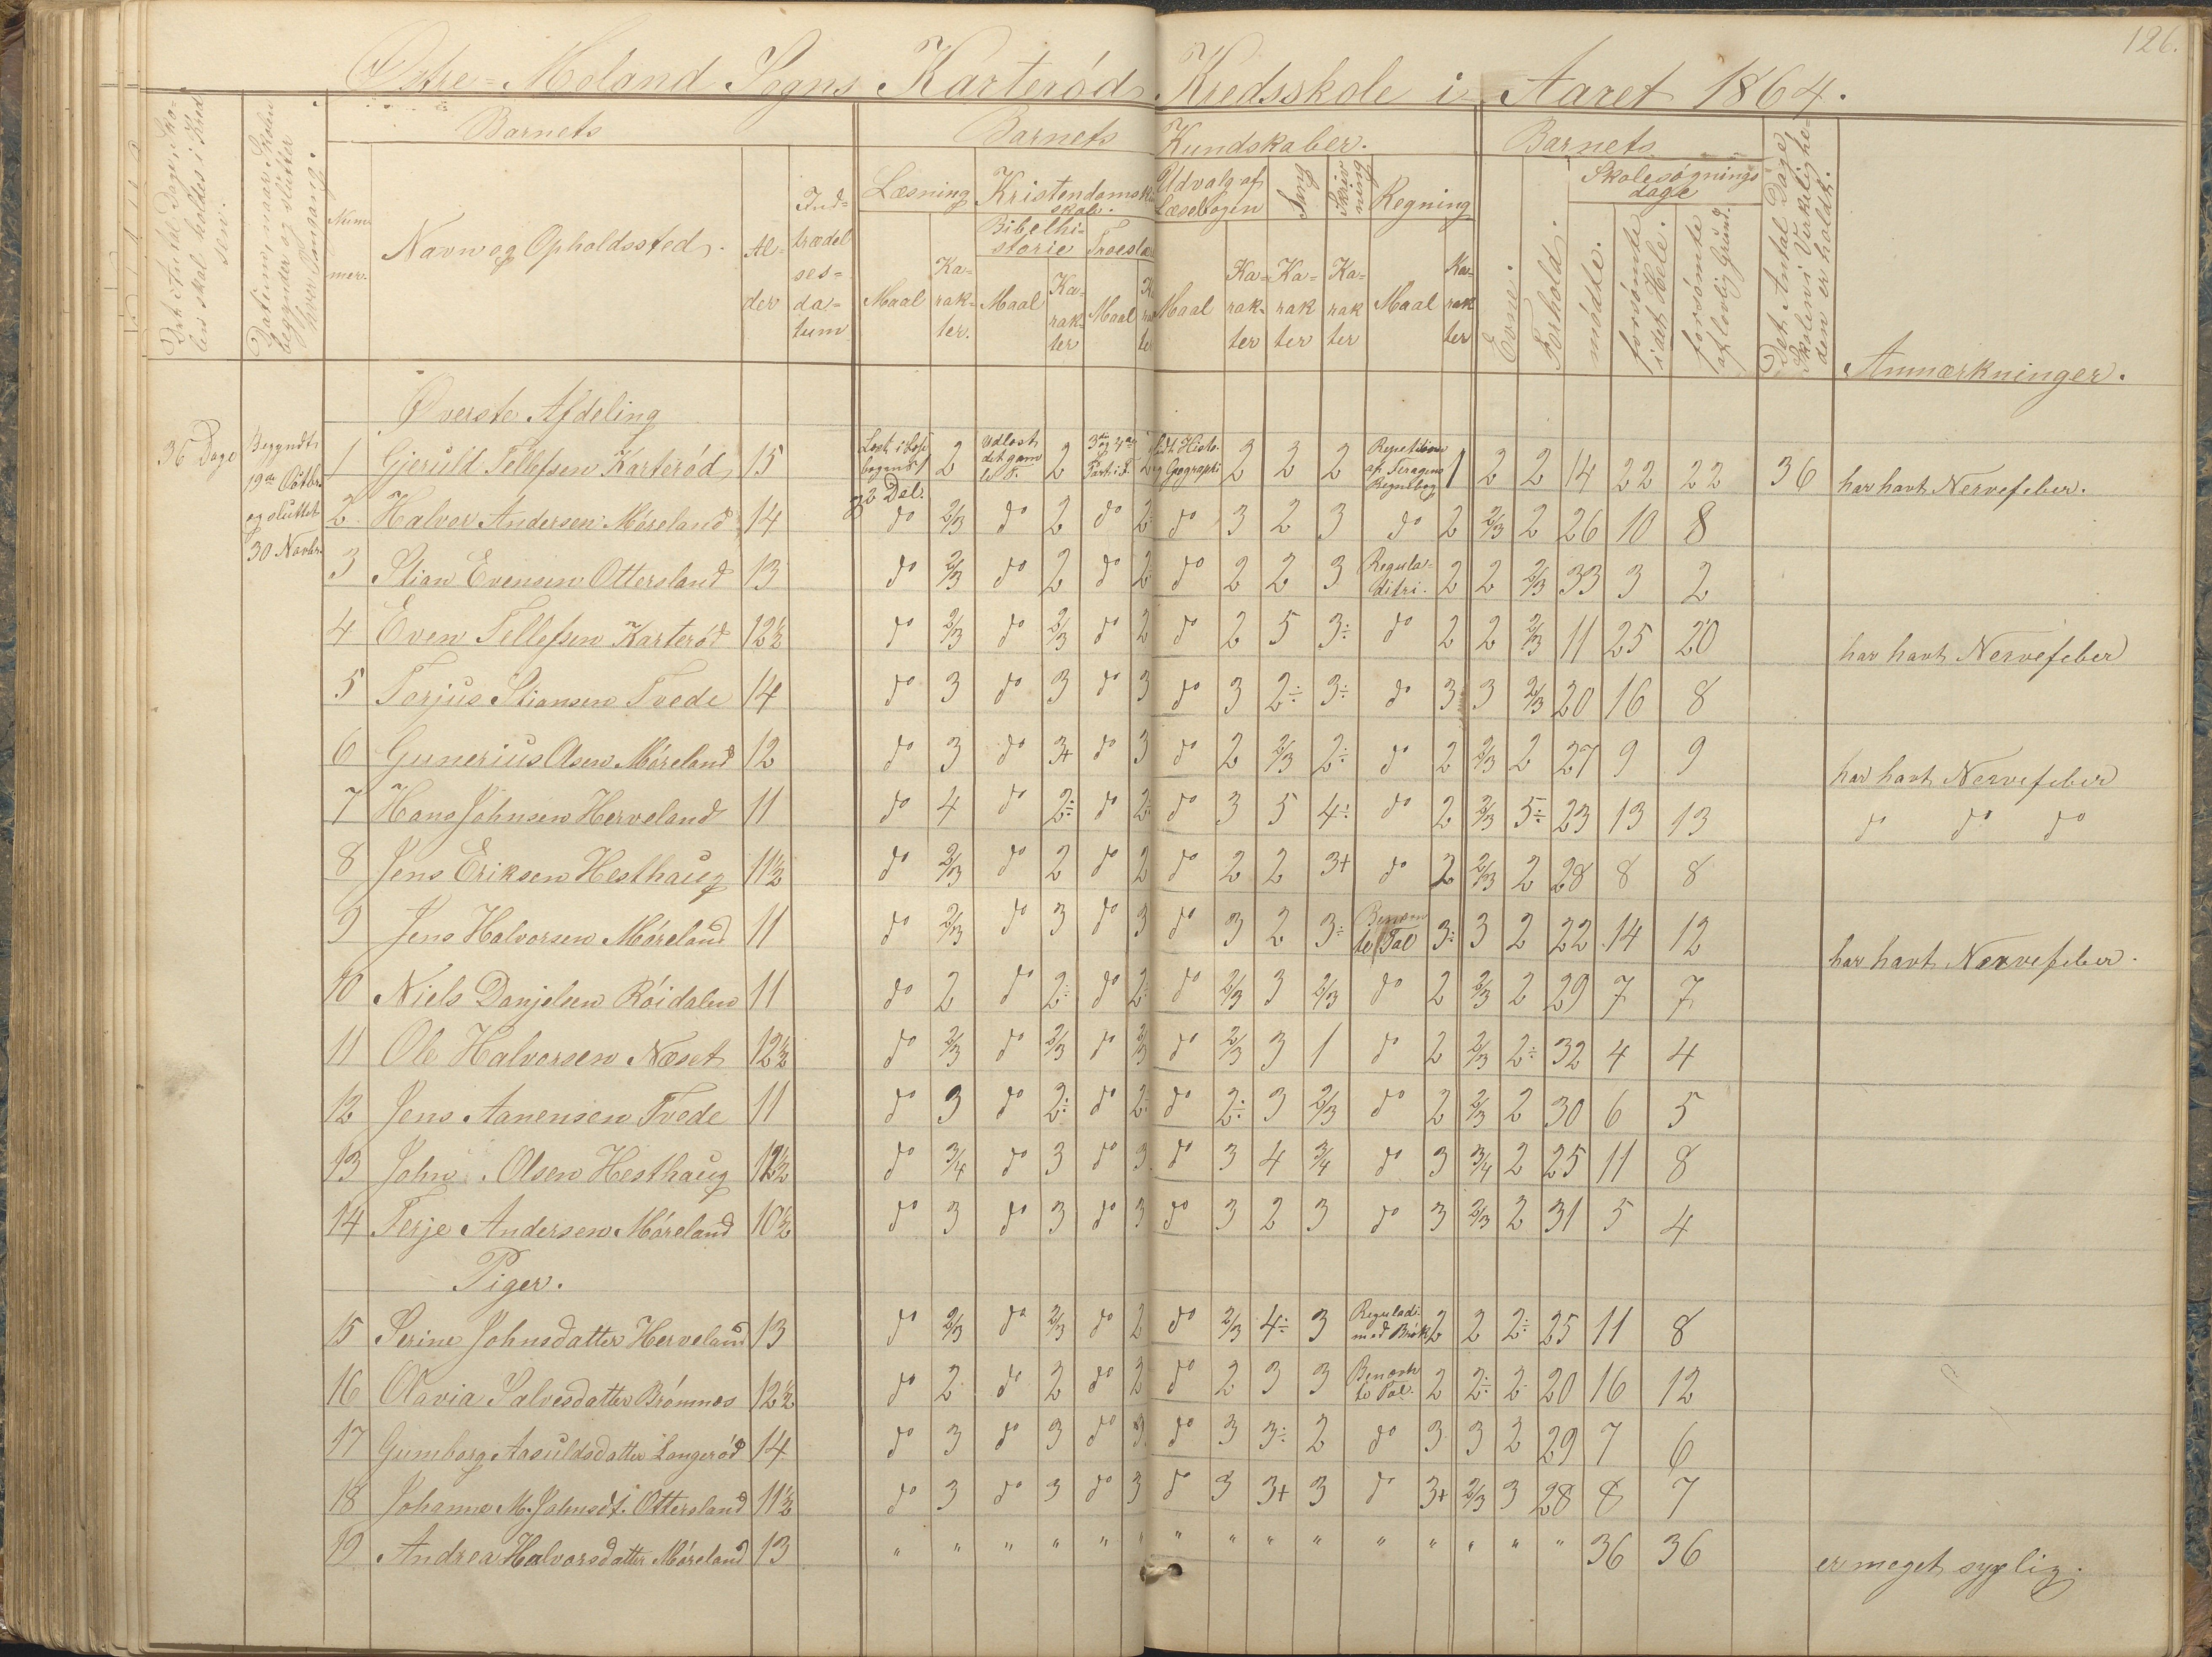 126.
Østre-Moland Sogns Karterød Kredsskole i Aaret 1864.
Det Antal Dage, Skolen skal holdes i Kredsen.
Datum, naar Skolen begynder og slutter hver Omgang.
Barnets
Barnets Kundskaber.
Barnets
Det Antal Dage Skolen i Virkeligheden er holdt.
Anmærkninger.
Nummer.
Navn og Opholdssted.
Alder
Indtrædelsesdatum
Læsning
Kristendomskundskab.
Udvalg af Læsebogen
Sang
Skrivning
Regning
Evne.
Forhold.
Skolesøgningsdage
Bibelhistorie
Troeslære
mødte.
forsømte i det Hele.
forsømte af lovlig Grund.
Maal Karakter. Maal Karakter Maal Karakter Maal Karakter Karakter Karakter Maal Karakter
Øverste Afdeling
36 Dage
Begyndt 19de Octbr. og sluttet 30 Novbr.
1 Gjeruld Tellefsen Karterød 15 Læst i Læsebogens 3de Del. 2 Udlæst det gamle T. 2 3die og 4de Part i F. 2 lidt Histo. og Geographi 2 2 2 Repetition af Feragens Regnebog 1 2 2 14 22 22 36 har havt Nervefeber.
2 Halvor Andersen Møreland 14 do 2/3 do 2 do 2÷ do 3 2 3 do 2 2/3 2 26 10 8
3 Stian Evensen Ottersland 13 do 2/3 do 2 do 2 do 2 2 3 Reguladitri. 2 2 2/3 33 3 2
4 Even Tellefsen Karterød 12½ do 2/3 do 2/3 do 2 do 2 5 3÷ do 2 2 2/3 11 25 20 har havt Nervefeber
5 Terjus Stiansen Tvede 14 do 3 do 3 do 3 do 3 2÷ 3÷ do 3 3 2/3 20 16 8
6 Gunerius Olsen Møreland 12 do 3 do 3+ do 3 do 2 2/3 2÷ do 2 2/3 2 27 9 9 har havt Nervefeber
7 Hans Johnsen Herveland 11 do 4 do 2÷ do 2÷ do 3 5 4÷ do 2 2/3 5÷ 23 13 13 do do do
8 Jens Eriksen Hesthaug 11½ do 2/3 do 2 do 2 do 2 2 3+ do 2 2/3 2 28 8 8
9 Jens Halvorsen Møreland 11 do 2/3 do 3 do 3 do 3 2 3÷ Benævnte Tal 3÷ 3 2 22 14 12 har havt Nervefeber.
10 Niels Danjelsen Røidalen 11 do 2 do 2÷ do 2÷ do 2/3 3 2/3 do 2 2/3 2 29 7 7
11 Ole Halvorsen Næset 12½ do 2/3 do 2/3 do 2/3 do 2/3 3 1 do 2 2/3 2÷ 32 4 4
12 Jens Aanensen Tvede 11 do 3 do 2÷ do 2÷ do 2÷ 3 2/3 do 2 2/3 2 30 6 5
13 John Olsen Hesthaug 12½ do 3/4 do 3 do 3 do 3 4 3/4 do 3 3/4 2 25 11 8
14 Terje Andersen Møreland 10½ do 3 do 3 do 3 do 3 2 3 do 3 2/3 2 31 5 4
Piger.
15 Serine Johnsdatter Herveland 13 do 2/3 do 2/3 do 2 do 2/3 4÷ 3 Reguladi. med Brøk 2 2 2÷ 25 11 8
16 Olavia Salvesdatter Brømnes 12½ do 2 do 2 do 2 do 2 3 3 Benævnte Tal. 2 2÷ 2 20 16 12
17 Gumborg Aasuldsdatter Langerød 14 do 3 do 3 do 3 do 3 3÷ 2 do 3 3 2 29 7 6
18 Johanne M. Johnsdt. Ottersland 11½ do 3 do 3 do 3 do 3 3+ 3 do 3+ 2/3 3 28 8 7
19 Andrea Halvorsdatter Møreland 13 " " " " " " " " " " " " " " " 36 36 er meget syglig.